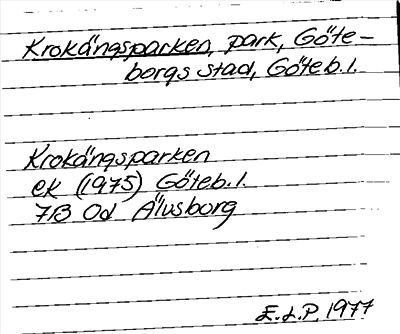 Krokängsparken, park, Göte-
borgs stad, Göteb. l.
Krokängsparken
ek (1975) Göteb. l.
7B Od Älvsborg
E.L.P. 1977